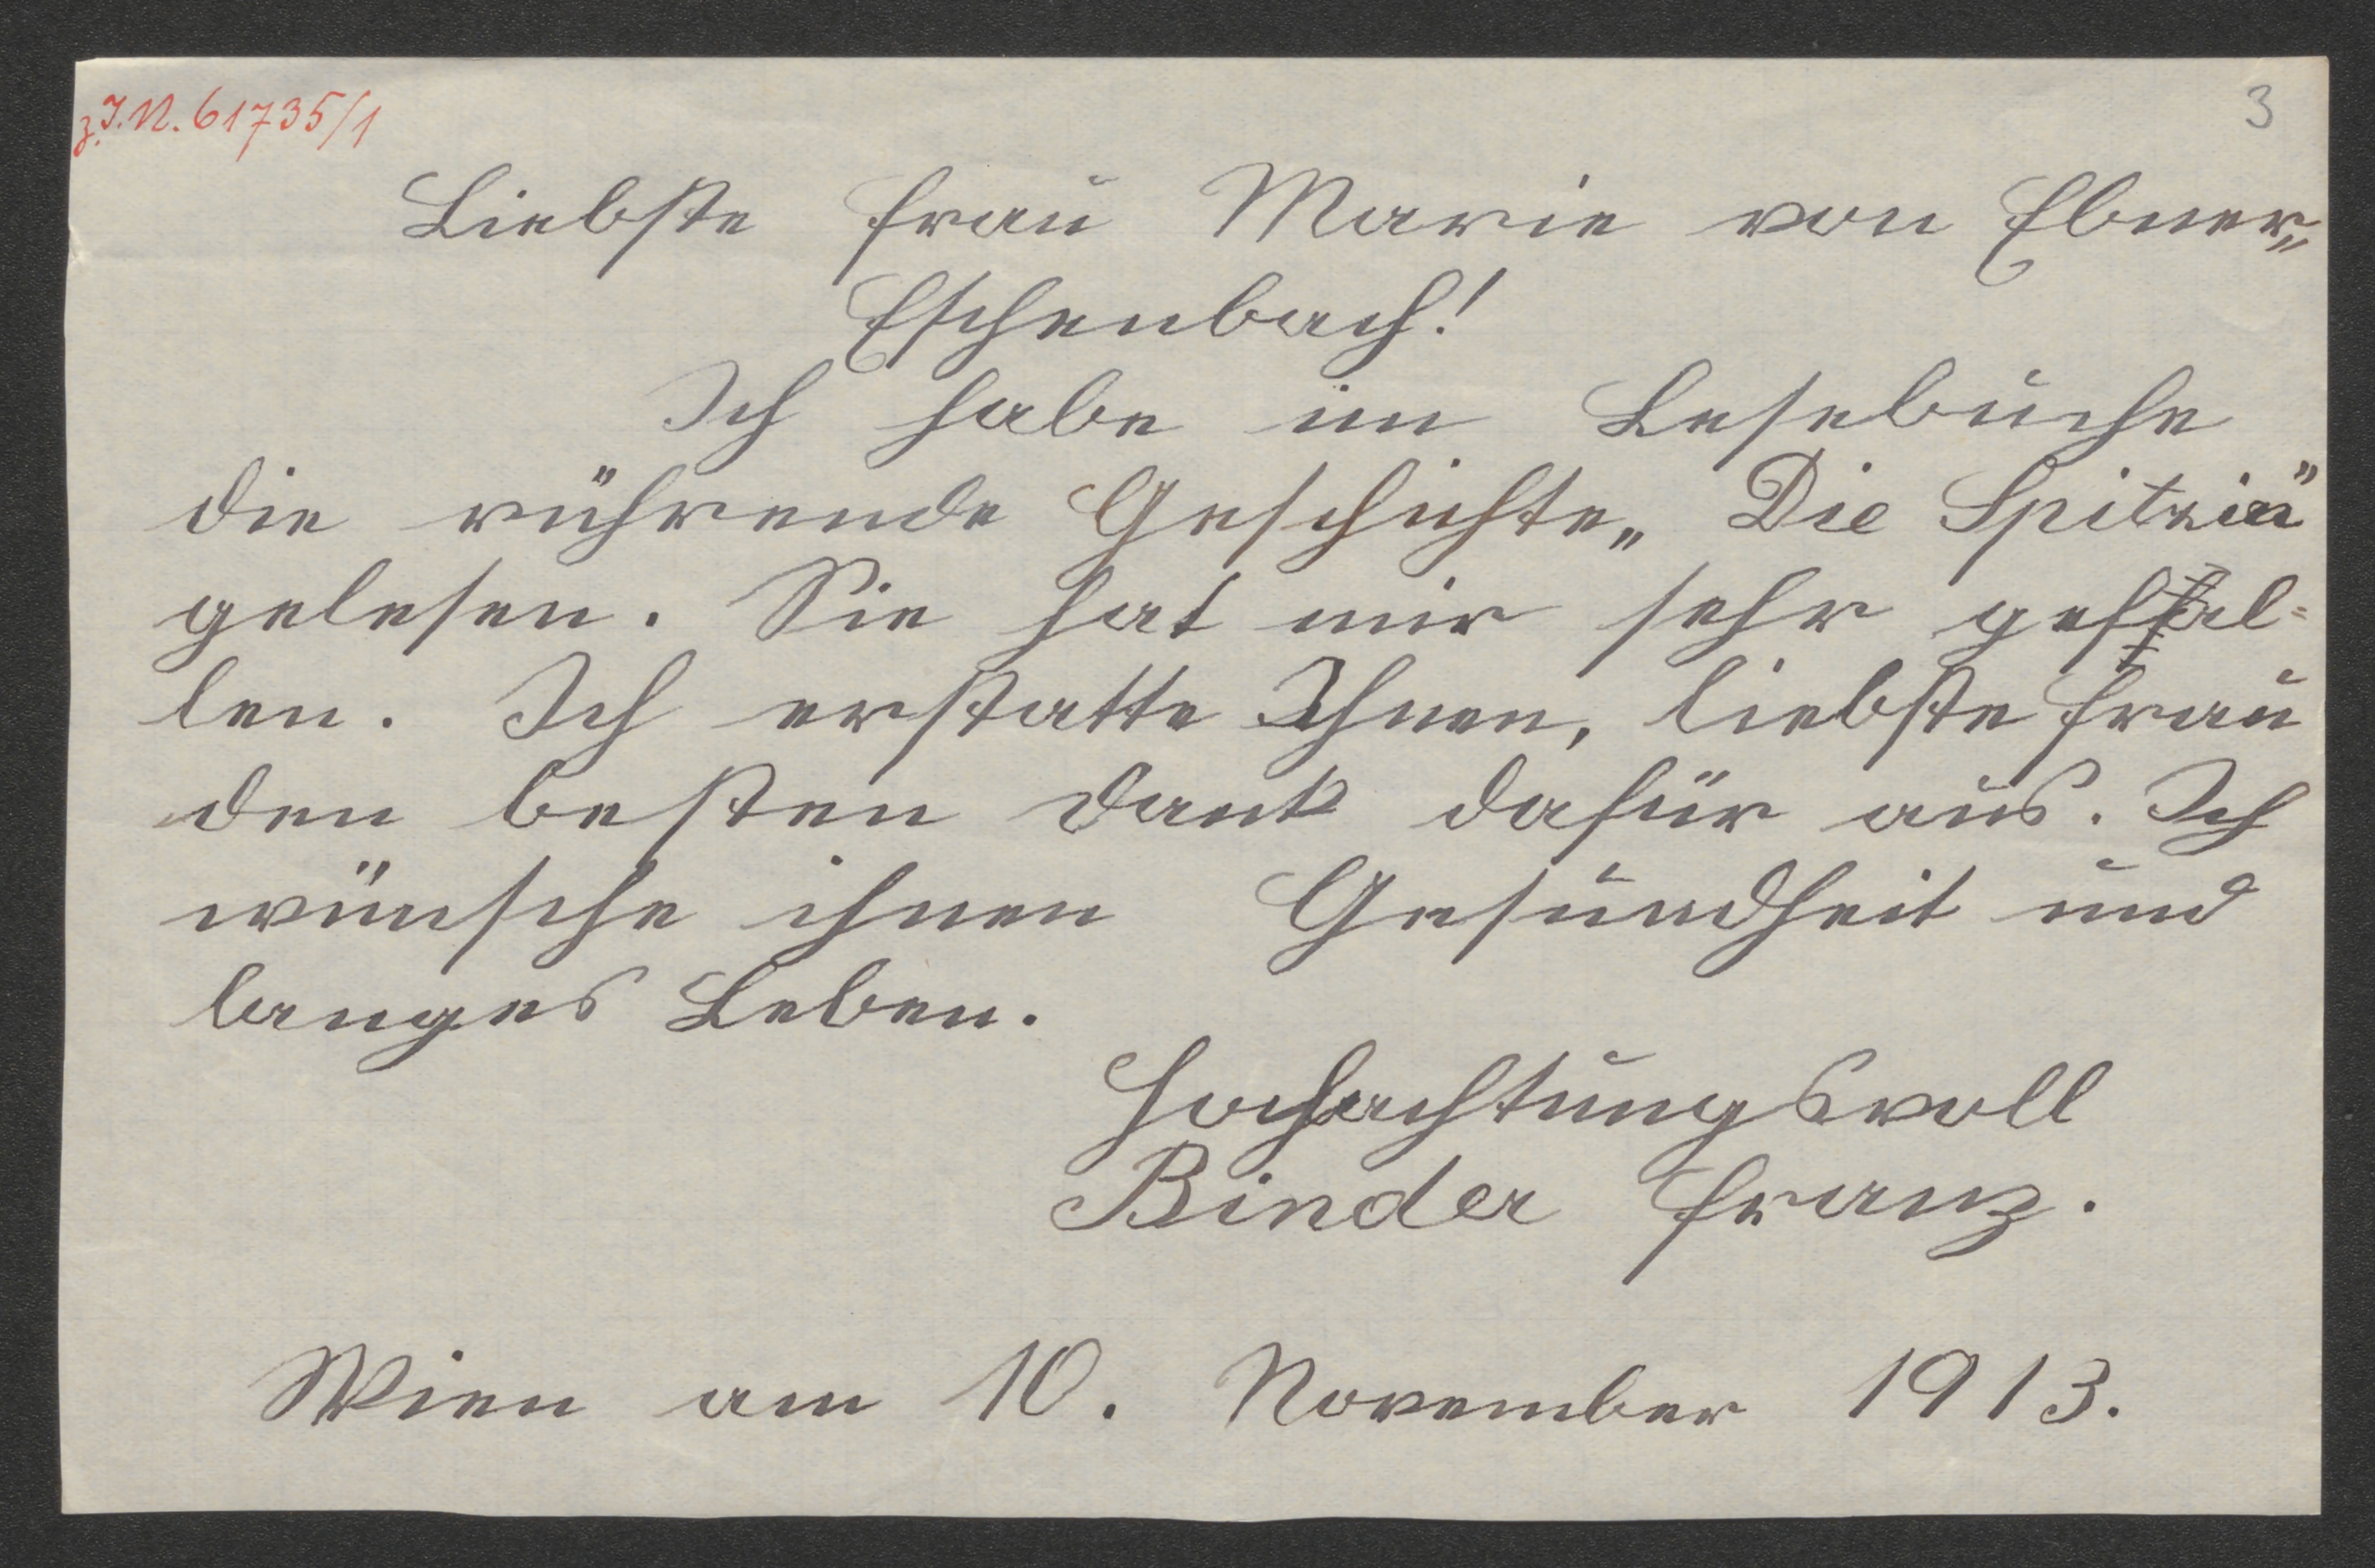 z. I.N. 61735/1
3
Liebste Frau Marie von Ebner„
Eschenbach!
Ich habe im Lesebuche
die rührende Geschichte „Die Spitzin"
gelesen. Sie hat mir sehr gefal-
len. Ich erstatte Ihnen, liebste Frau
den besten Dank dafür aus. Ich
wünsche ihnen Gesundheit und
langes Leben.
Hochachtungsvoll
Binder Franz.
Wien am 10. November 1913.